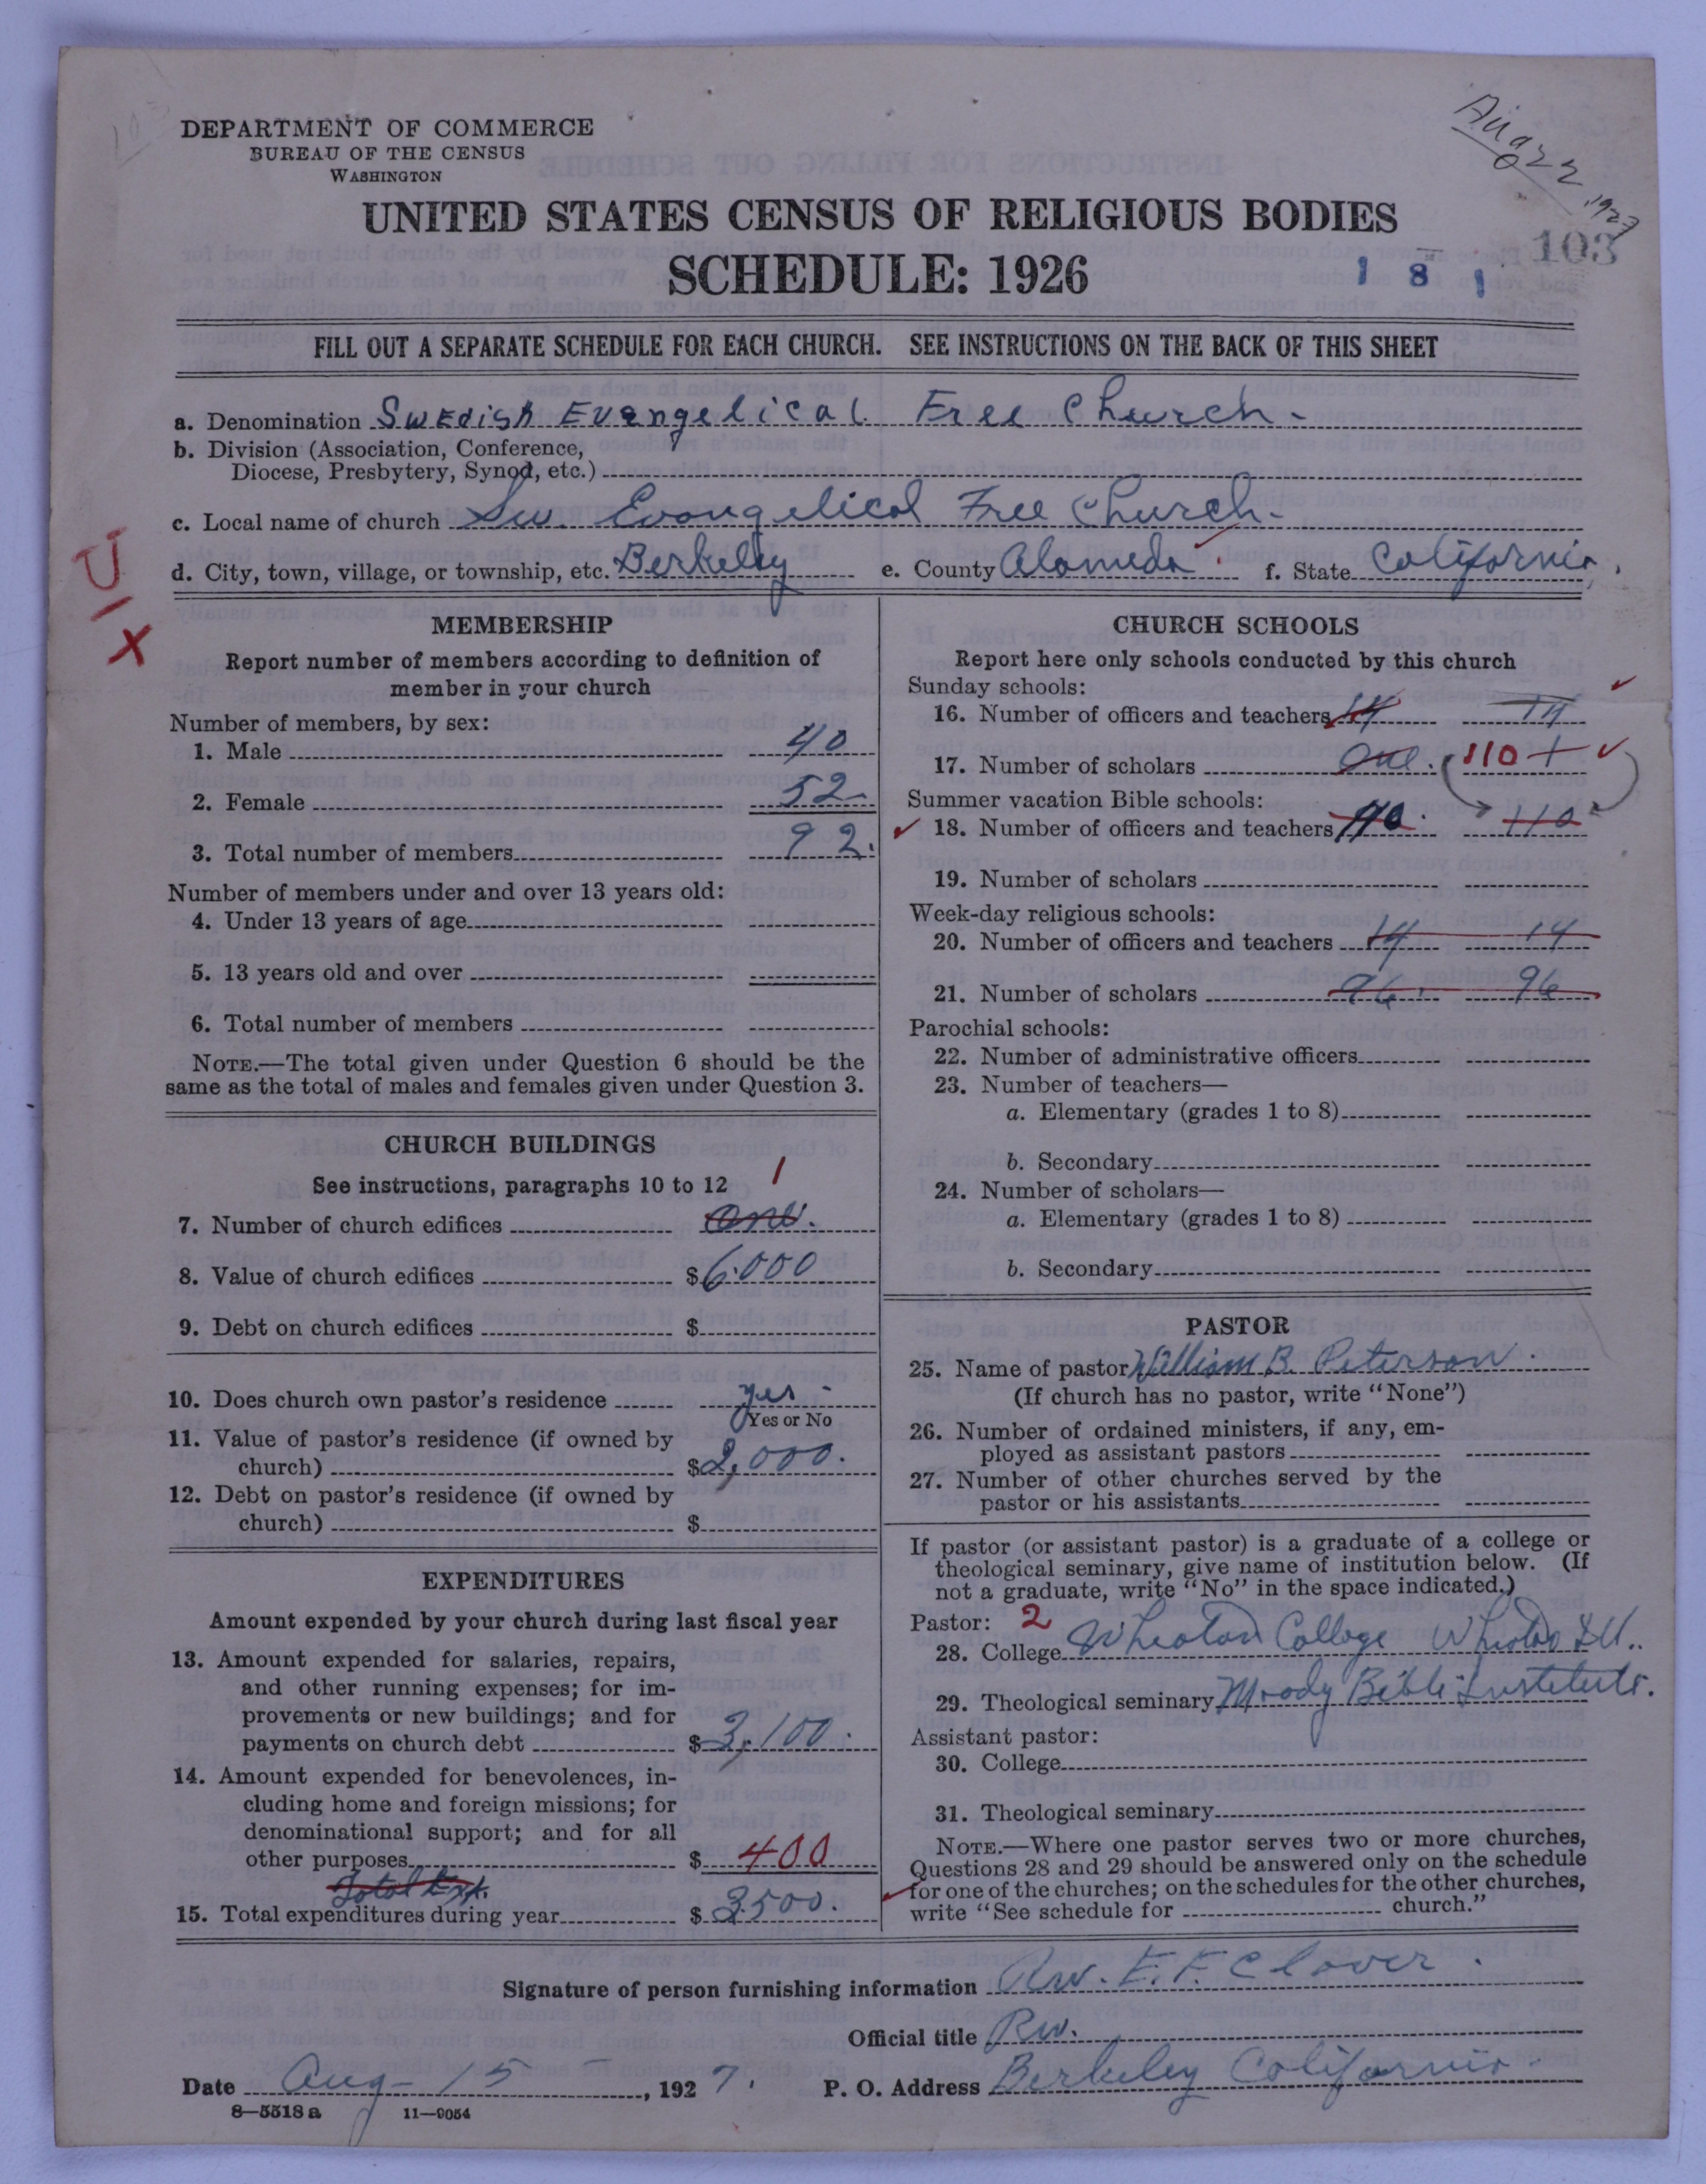 Aug 22, 1927
DEPARTMENT OF COMMERCE
BUREAU OF THE CENSUS
WASHINGTON
UNITED STATES CENSUS OF RELIGIOUS BODIES
SCHEDULE: 1926
1 8 1
103
FILL OUT A SEPARATE SCHEDULE FOR EACH CHURCH. SEE INSTRUCTIONS ON THE BACK OF THIS SHEET
a. Denomination Swedish Evangelical Free Church-
b. Division (Association, Conference,
Diocese, Presbytery, Synod, etc.)
c. Local name of church Sw. Evangelical Free Church-
d. City, town, village, or township, etc. Berkeley e. County Alameda f. State California
U
X
MEMBERSHIP
Report number of members according to definition of
member in your church
Number of members, by sex:
1. Male 40
2. Female 52
3. Total number of members 92.
Number of members under and over 13 years old:
4. Under 13 years of age
5. 13 years old and over
6. Total number of members
NOTE.—The total given under Question 6 should be the
same as the total of males and females given under Question 3.
CHURCH BUILDINGS
See instructions, paragraphs 10 to 12
1
7. Number of church edifices One.
8. Value of church edifices $6.000
9. Debt on church edifices $
10. Does church own pastor's residence yes-
Yes or No
11. Value of pastor's residence (if owned by
church) $2,000.
12. Debt on pastor's residence (if owned by
church) $
EXPENDITURES
Amount expended by your church during last fiscal year
13. Amount expended for salaries, repairs,
and other running expenses; for im-
provements or new buildings; and for
payments on church debt $3,100.
14. Amount expended for benevolences, in-
cluding home and foreign missions; for
denominational support; and for all
other purposes $400
Total Exp.
15. Total expenditures during year $3500.
CHURCH SCHOOLS
Report here only schools conducted by this church
Sunday schools:
16. Number of officers and teachers 14 14
17. Number of scholars One. 110 +
Summer vacation Bible schools:
18. Number of officers and teachers 110. 110
19. Number of scholars
Week-day religious schools:
20. Number of officers and teachers 14 14
21. Number of scholars 96 96
Parochial schools:
22. Number of administrative officers
23. Number of teachers—
a. Elementary (grades 1 to 8)
b. Secondary
24. Number of scholars—
a. Elementary (grades 1 to 8)
b. Secondary
PASTOR
25. Name of pastor William B. Peterson.
(If church has no pastor, write "None")
26. Number of ordained ministers, if any, em-
ployed as assistant pastors
27. Number of other churches served by the
pastor or his assistants
If pastor (or assistant pastor) is a graduate of a college or
theological seminary, give name of institution below. (If
not a graduate, write "No" in the space indicated.)
Pastor: 2
28. College Wheaton College Wheaton Ill..
29. Theological seminary Moody Bible Institute.
Assistant pastor:
30. College
31. Theological seminary
NOTE.—Where one pastor serves two or more churches,
Questions 28 and 29 should be answered only on the schedule
for one of the churches; on the schedules for the other churches,
write "See schedule for church."
Signature of person furnishing information Rev. E. F. Clover.
Official title Rev.
Date Aug- 15 —, 1927. P. O. Address Berkeley California-
8—5518 a 11—9054